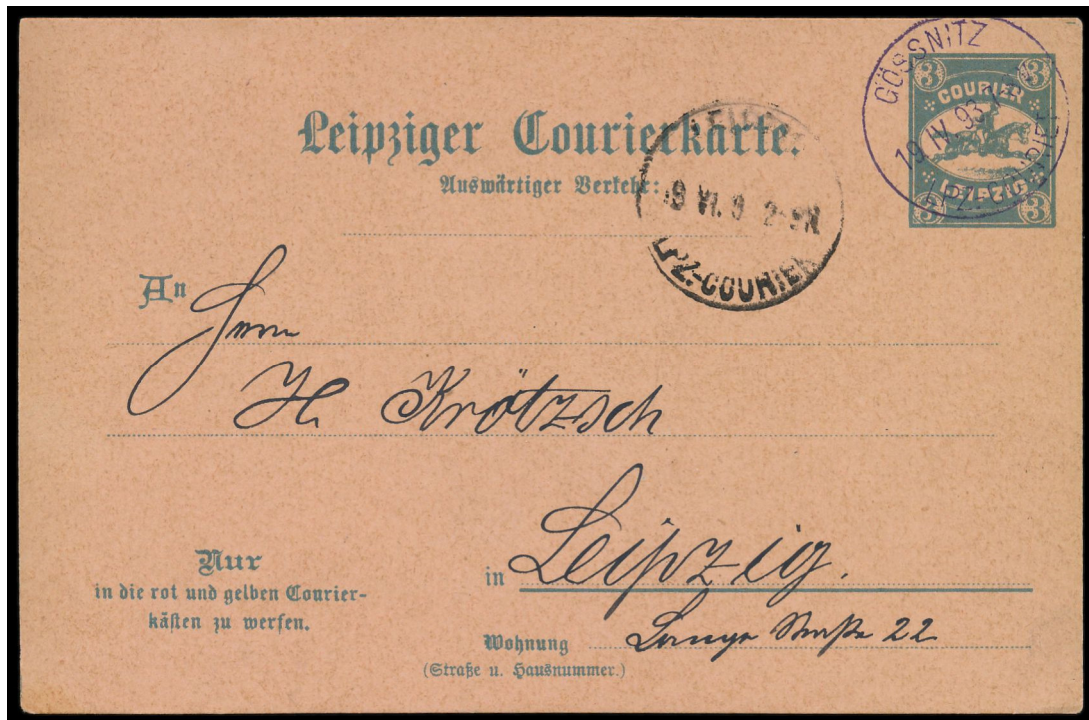 GÖSSNITZ
19 IV. 93
LPZ.-COURIER
3 3
COURIER
LEIPZIG
3 3
Leipziger Courierkarte.
Auswärtiger Verkehr:
LPZ.-COURIER
An
Herrn
H. Krötzsch
in Leipzig.
Nur
in die rot und gelben Courier-
kästen zu werfen.
Wohnung Lange Straße 22
(Straße u. Hausnummer.)